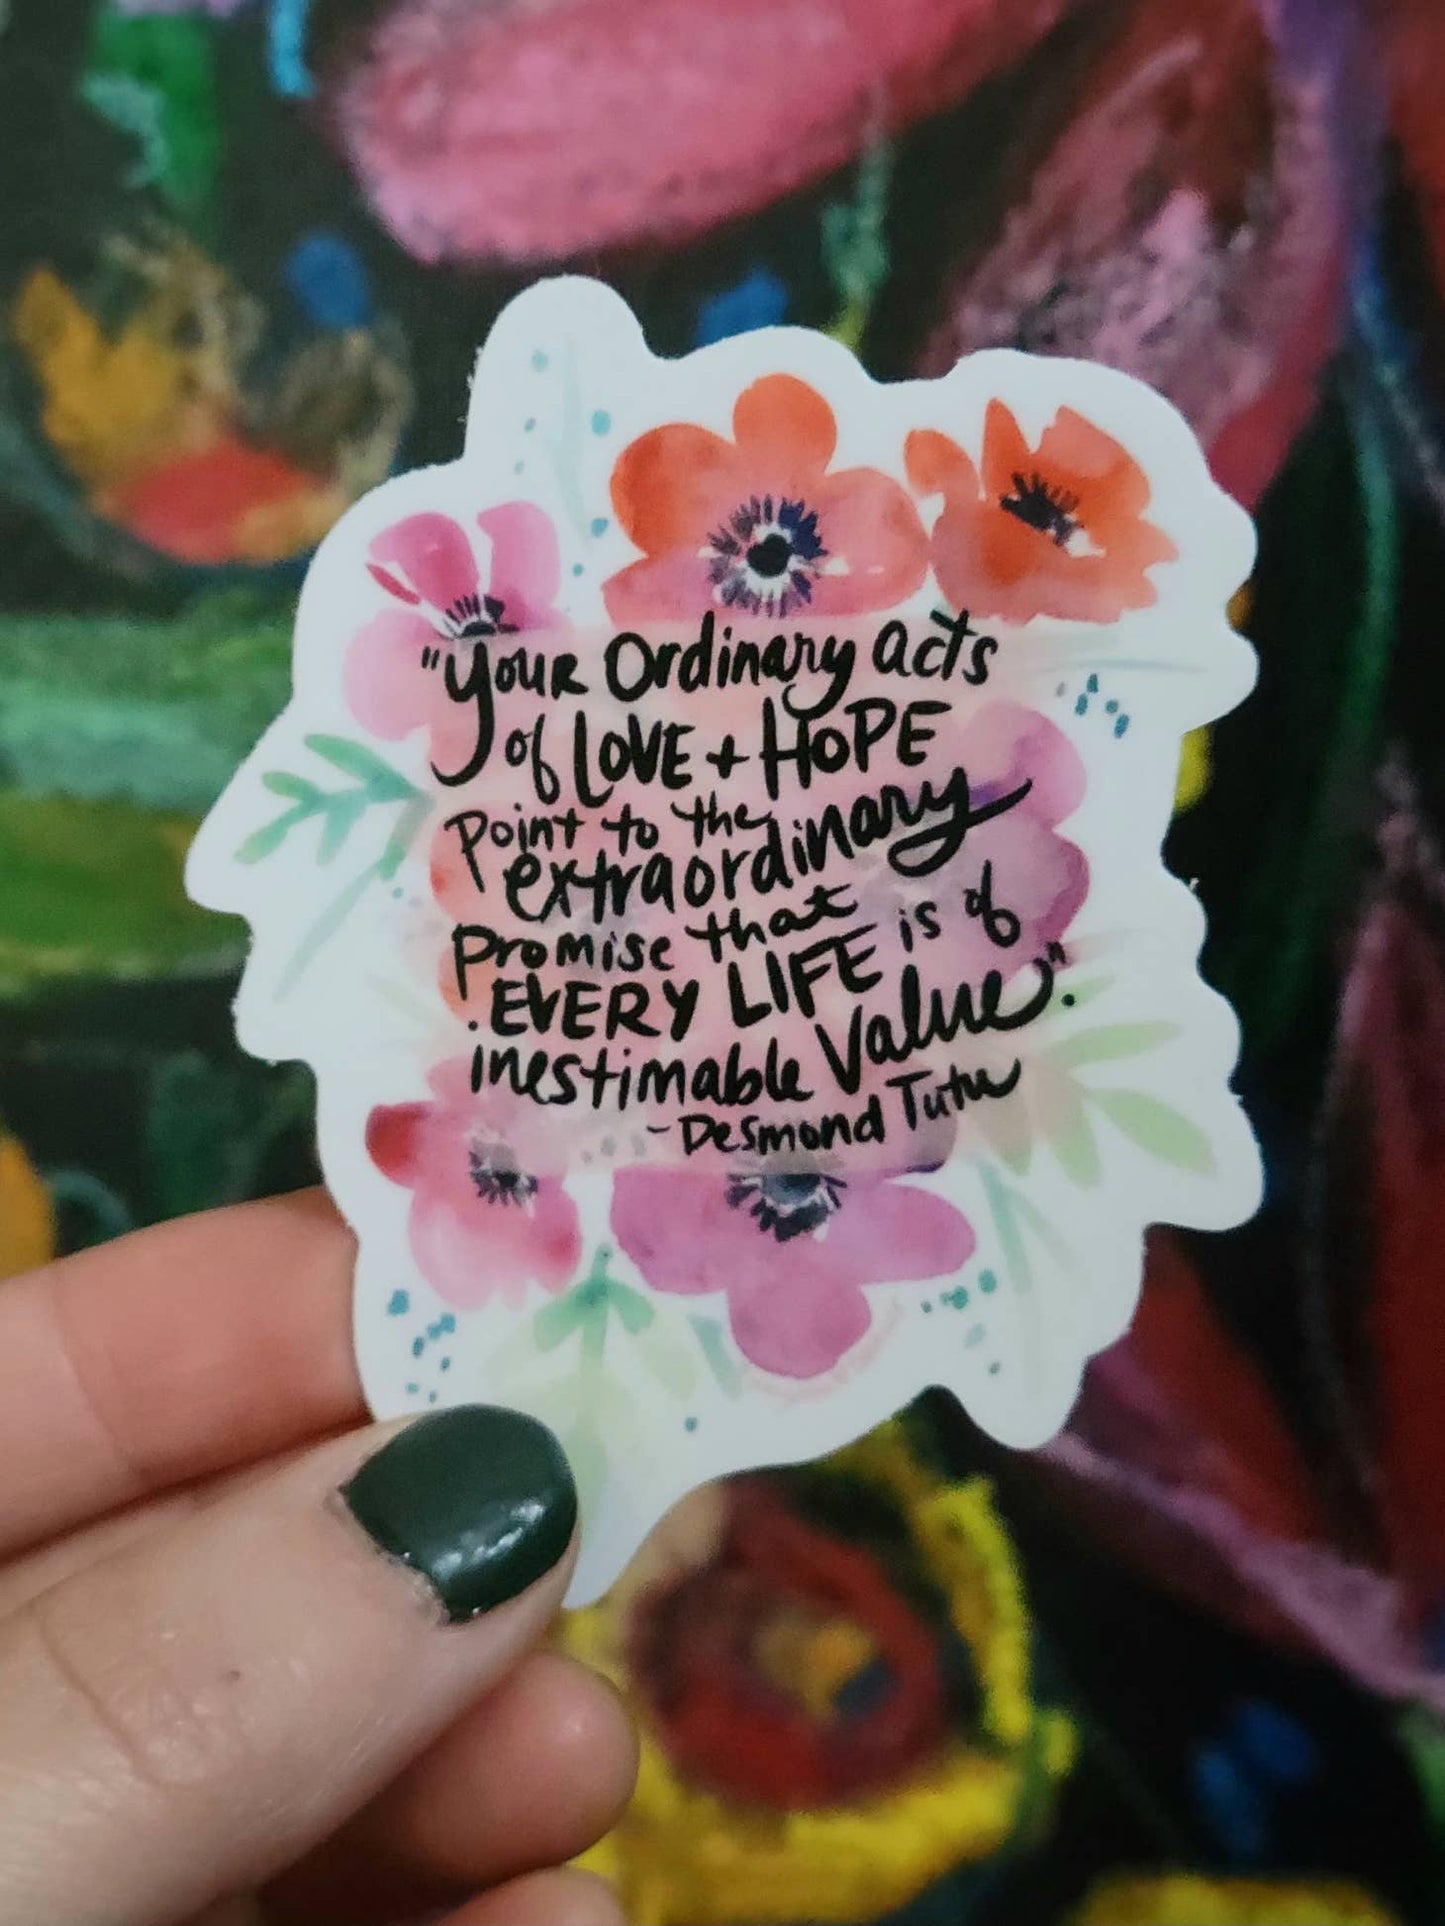 "Your Ordinary acts
of LOVE + HOPE
Point to the
extraordinary
promise that
EVERY LIFE is of
inestimable Value".
- Desmond Tutu